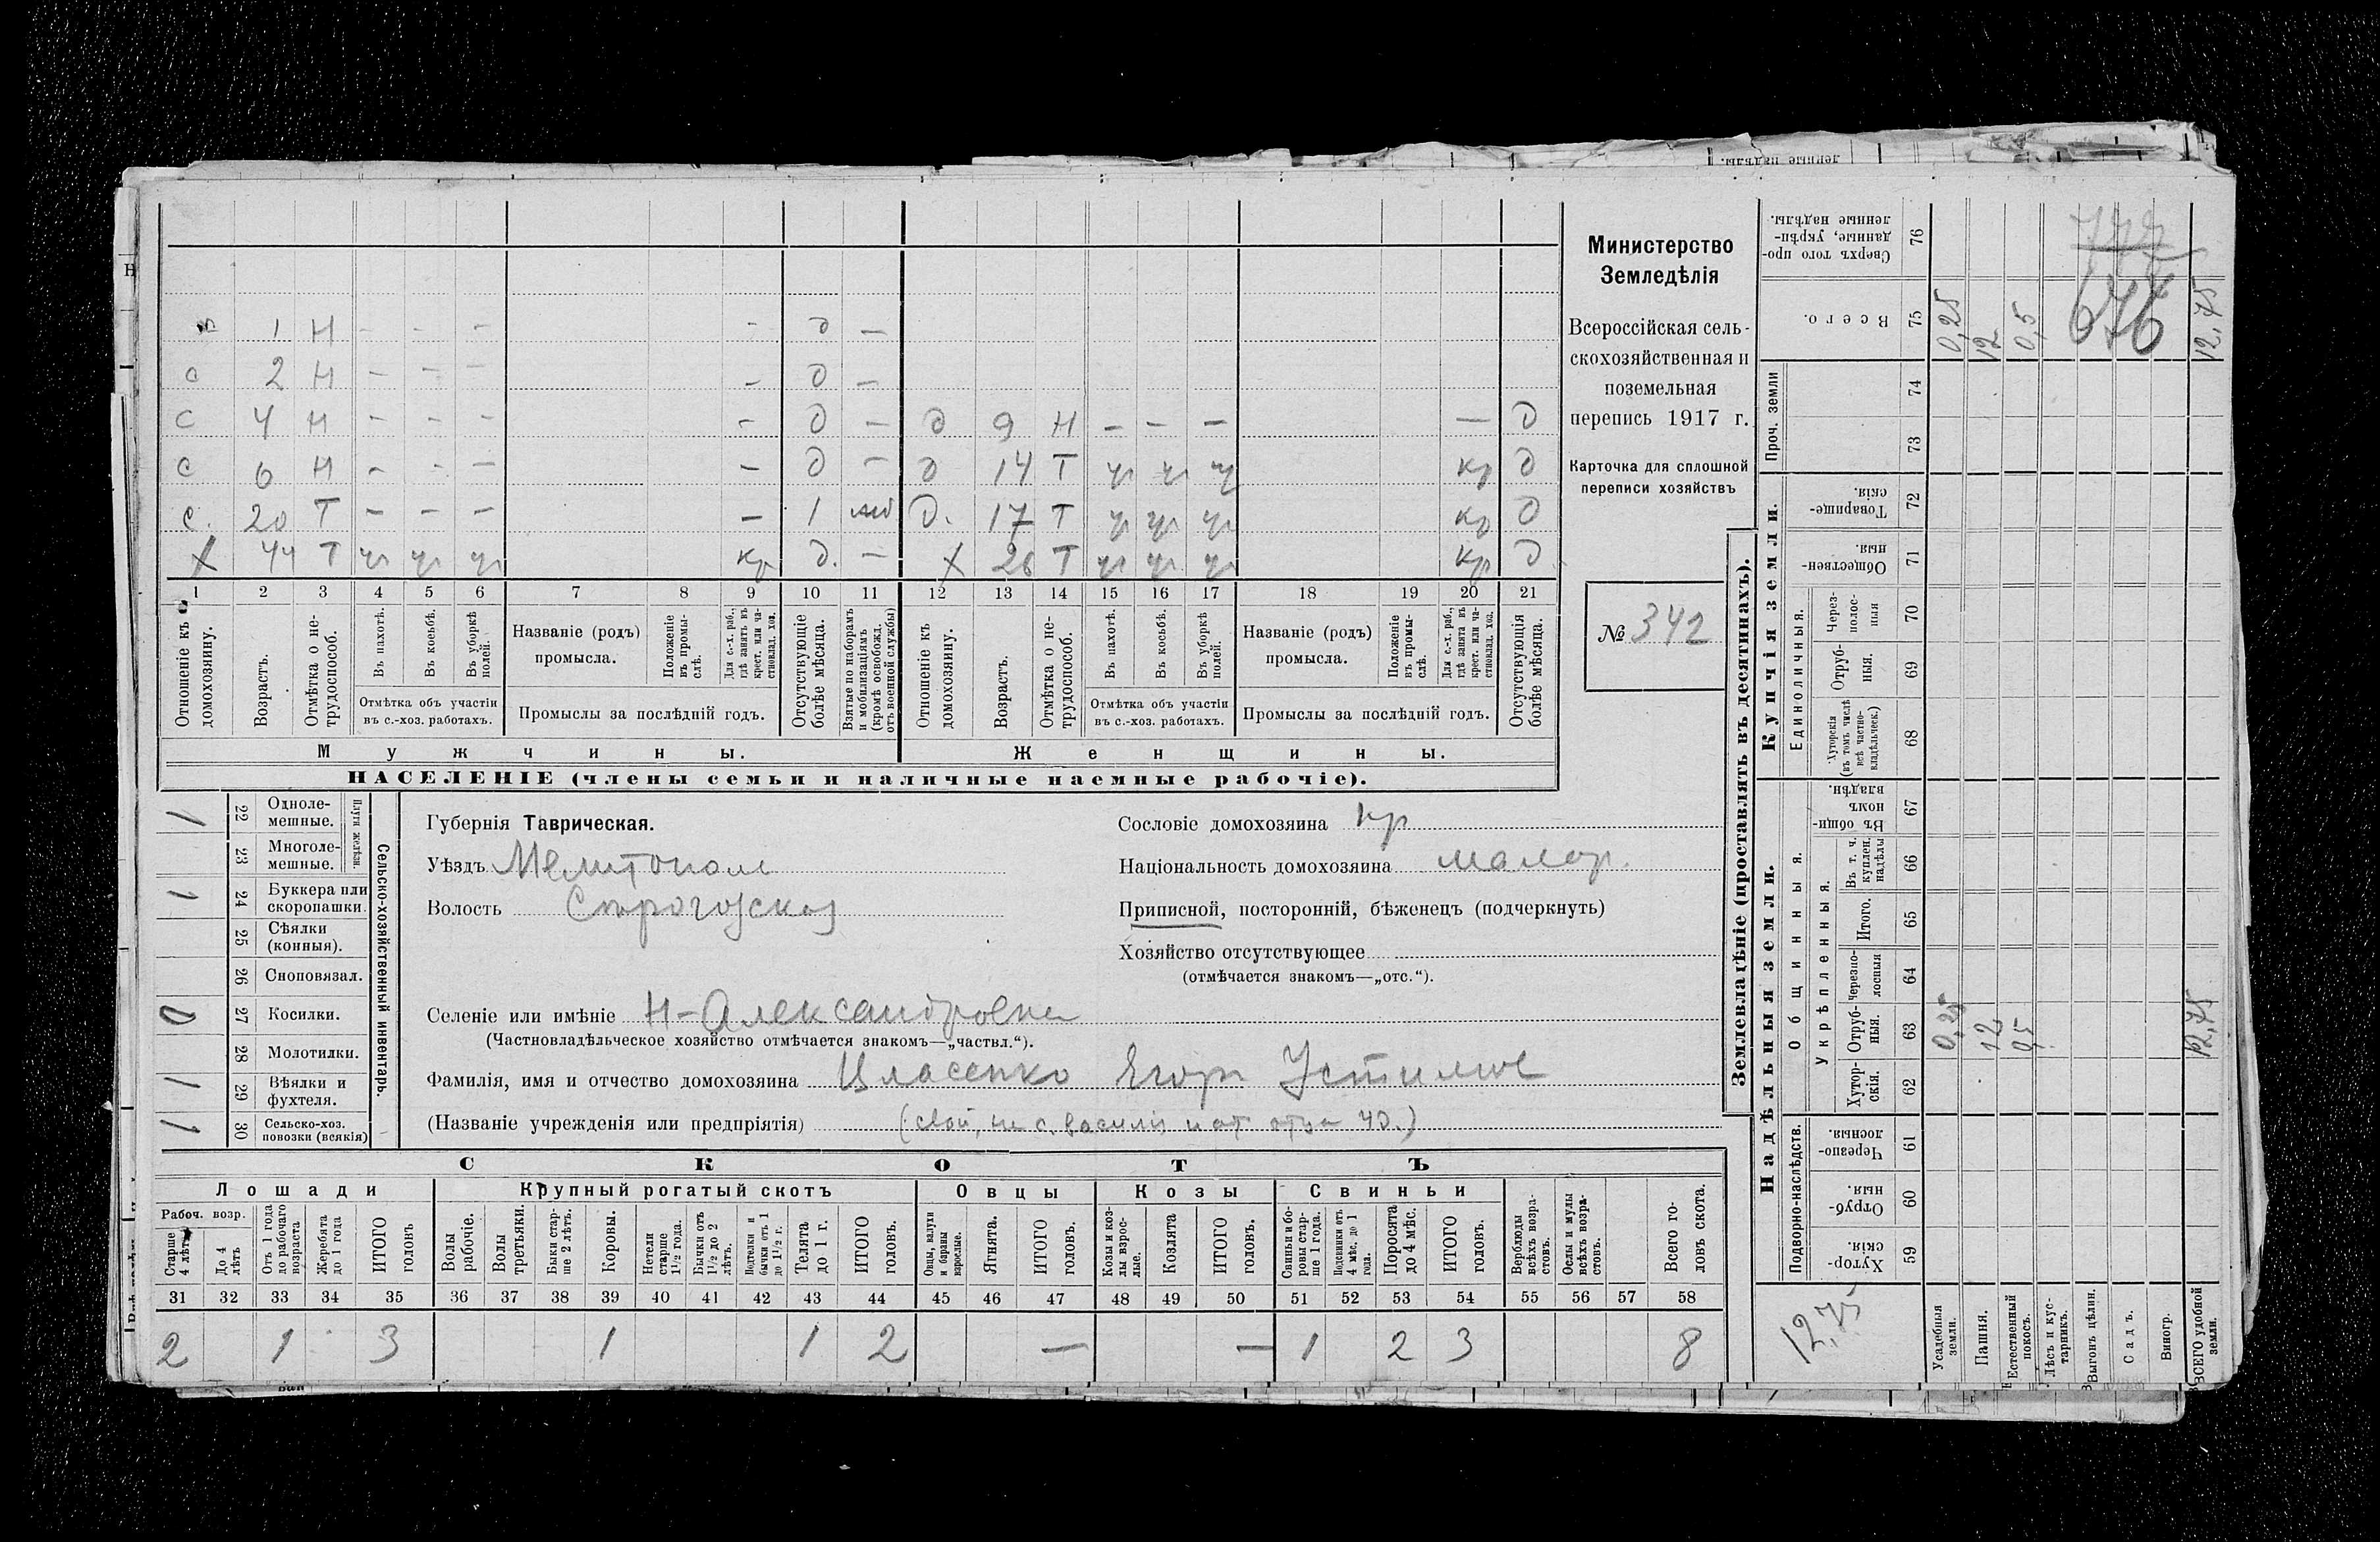 с 1 Н - - - - д —
с 2 Н - - - - д —
с 4 Н - - - - д — д 9 Н - - - — д
с 6 Н - - - - д — д 14 Т ч ч ч кр д
с. 20 Т - - - — 1 моб д. 17 Т ч ч ч кр д
х 44 Т ч ч ч кр д. — х 26 Т ч ч ч кр д
1 2 3 4 5 6 7 8 9 10 11 12 13 14 15 16 17 18 19 20 21
Отношеніе къ домохозяину.
Возрастъ.
Отмѣтка о не-трудоспособ.
Въ пахотѣ.
Въ косьбѣ.
Въ уборкѣ полей.
Отмѣтка объ участіи
въ с.-хоз. работахъ.
Названіе (родъ)
промысла.
Положеніе въ промы-слѣ.
Для с.-х. раб., гдѣ занятъ въ крест. или ча-стновлад. хоз.
Промыслы за послѣдній годъ.
Отсутствующіе болѣе мѣсяца.
Взятые по наборамъ и мобилизаціямъ (кромѣ освобожд. отъ военной службы)
Отношеніе къ домохозяину.
Возрастъ.
Отмѣтка о не-трудоспособ.
Въ пахотѣ.
Въ косьбѣ.
Въ уборкѣ полей.
Отмѣтка объ участіи
въ с.-хоз. работахъ.
Названіе (родъ)
промысла.
Положеніе въ промы-слѣ.
Для с.-х. раб., гдѣ занята въ крест. или ча-стновлад. хоз.
Промыслы за послѣдній годъ.
Отсутствующія болѣе мѣсяца.
Мужчины. Женщины.
НАСЕЛЕНІЕ (члены семьи и наличные наемные рабочіе).
Министерство
Земледѣлія
Всероссійская сель-
скохозяйственная и
поземельная
перепись 1917 г.
Карточка для сплошной
переписи хозяйствъ
№ 342
Сельско-хозяйственный инвентарь.
Плуги желѣзн.
1 22 Одноле-мешные.
23 Многоле-мешные.
1 24 Буккера или скоропашки.
25 Сѣялки (конныя).
26 Сноповязал.
0 27 Косилки.
28 Молотилки.
1 29 Вѣялки и фухтеля.
1 30 Сельско-хоз. повозки (всякія)
Губернія Таврическая.
Уѣздъ Мелитопол
Волость
Сословіе домохозяина кр
Національность домохозяина малор.
Приписной, посторонній, бѣженецъ (подчеркнуть)
Хозяйство отсутствующее
(отмѣчается знакомъ—„отс.“).
Селеніе или имѣніе Н-Александровка
(Частновладѣльческое хозяйство отмѣчается знакомъ—„частвл.“).
Фамилія, имя и отчество домохозяина Власенко Егор Устимов
(Названіе учрежденія или предпріятія)
СКОТЪ
Лошади Крупный рогатый скотъ Овцы Козы Свиньи
Рабоч. возр.
Старше 4 лѣтъ
До 4 лѣтъ
Отъ 1 года до рабочаго возраста
Жеребята до 1 года
ИТОГО головъ
Волы рабочіе.
Волы третьяки.
Быки стар-ше 2 лѣтъ.
Коровы.
Нетели старше 1½ года.
Бычки отъ 1½ до 2 лѣтъ.
Подтелки и бычки отъ 1 до 1½ г.
Телята до 1 г.
ИТОГО головъ.
Овцы, валухи и бараны взрослые.
Ягнята.
ИТОГО головъ.
Козы и коз-лы взрос-лые.
Козлята
ИТОГО головъ.
Свиньи и бо-ровы стар-ше 1 года.
Подсвинки отъ 4 мѣс. до 1 года.
Поросята до 4 мѣс.
ИТОГО головъ.
Верблюды всѣхъ возра-стовъ.
Ослы и мулы всѣхъ возра-стовъ.
Всего го-ловъ скота.
31 32 33 34 35 36 37 38 39 40 41 42 43 44 45 46 47 48 49 50 51 52 53 54 55 56 57 58
2 1 3 1 1 2 — — 1 2 3 8
Землевладѣніе (проставлять въ десятинахъ).
Купчія земли.
Надѣльныя земли.
Сверхъ того про-данные, укрѣп-ленные надѣлы. 76
Всего. 75 0,25 12 0,5 12,75
676
Проч. земли 74 73
Товарище-скія. 72
Обществен-ныя. 71
Единоличныя.
Через-полос-ныя 70
Отруб-ныя. 69
Хуторскія (въ томъ числѣ всѣ частно-владѣльческ.) 68
Общинныя.
Въ общин-номъ владѣн. 67
Укрѣпленныя.
Въ т. ч. куплен. надѣлы 66
Итого. 65
Черезпо-лосныя 64
Отруб-ныя. 63 0,25 12 0,5 12,75
Хутор-скія. 62
Подворно-наслѣдств.
Черезпо-лосныя. 61
Отруб-ныя. 60
Хутор-скія. 59
12,75
Усадебныя земли.
Пашня.
Естественный покосъ.
Лѣсъ и кус-тарникъ.
Выгонъ цѣлин.
Садъ.
Виногр.
ВСЕГО удобной земли.